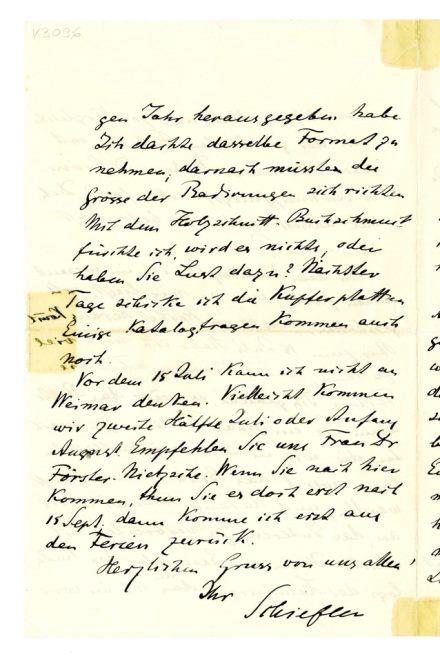 K3096
gen Jahr herausgegeben habe
Ich dachte dasselbe Format zu
nehmen, darnach müssten die
Grösse der Radirungen sich richten
Mit dem Holzschnitt-Buchschmuck
fürchte ich, wird es nichts, oder
haben Sie Lust dazu? Nächster
Tage schicke ich die Kupferplatten
Einige Katalogfragen kommen auch
noch.
Vor dem 15 Juli kann ich nicht an
Weimar denken. Vielleicht kommen
wir zweite Hälfte Juli oder Anfang
August. Empfehlen Sie uns Frau Dr
Förster-Nietzsche. Wenn Sie nach hier
kommen, thun Sie es doch erst nach
15 Sept, dann komme ich erst aus
den Ferien zurück.
Herzlichen Gruss von uns allen!
Ihr
Schiefler